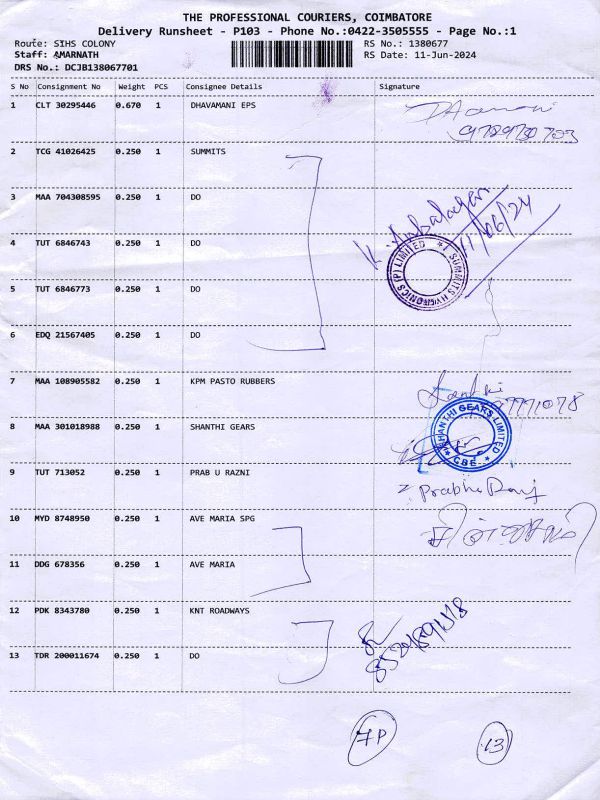 THE PROFESSIONAL COURIERS, COIMBATORE
Delivery Runsheet - P103 - Phone No.:0422-3505555 - Page No.:1
Route: SIHS COLONY
Staff: AMARNATH
DRS No.: DCJB138067701
RS No.: 1380677
RS Date: 11-Jun-2024
S No Consignment No Weight PCS Consignee Details Signature
1 CLT 30295446 0.670 1 DHAVAMANI EPS
2 TCG 41026425 0.250 1 SUMMITS
3 MAA 704308595 0.250 1 DO
11/06/24
4 TUT 6846743 0.250 1 DO
SUMMITS HYGRONICS (P) LIMITED
5 TUT 6846773 0.250 1 DO
6 EDQ 21567405 0.250 1 DO
7 MAA 108905582 0.250 1 KPM PASTO RUBBERS
8 MAA 301018988 0.250 1 SHANTHI GEARS
SHANTHI GEARS LIMITED
CBE.
9 TUT 713052 0.250 1 PRAB U RAZNI
10 MYD 8748950 0.250 1 AVE MARIA SPG
11 DDG 678356 0.250 1 AVE MARIA
12 PDK 8343780 0.250 1 KNT ROADWAYS
13 TDR 200011674 0.250 1 DO
7P
13